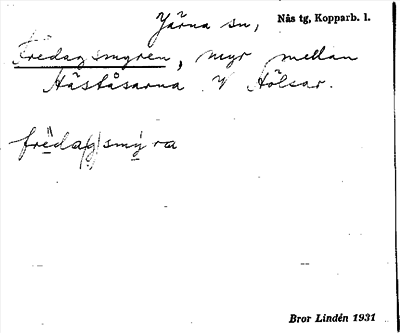 Järna sn, Nås tg, Kopparb. l.
Fredagsmyren, myr mellan
Häståsarna V Hölsar.
freda(g)smýra
Bror Lindén 1931